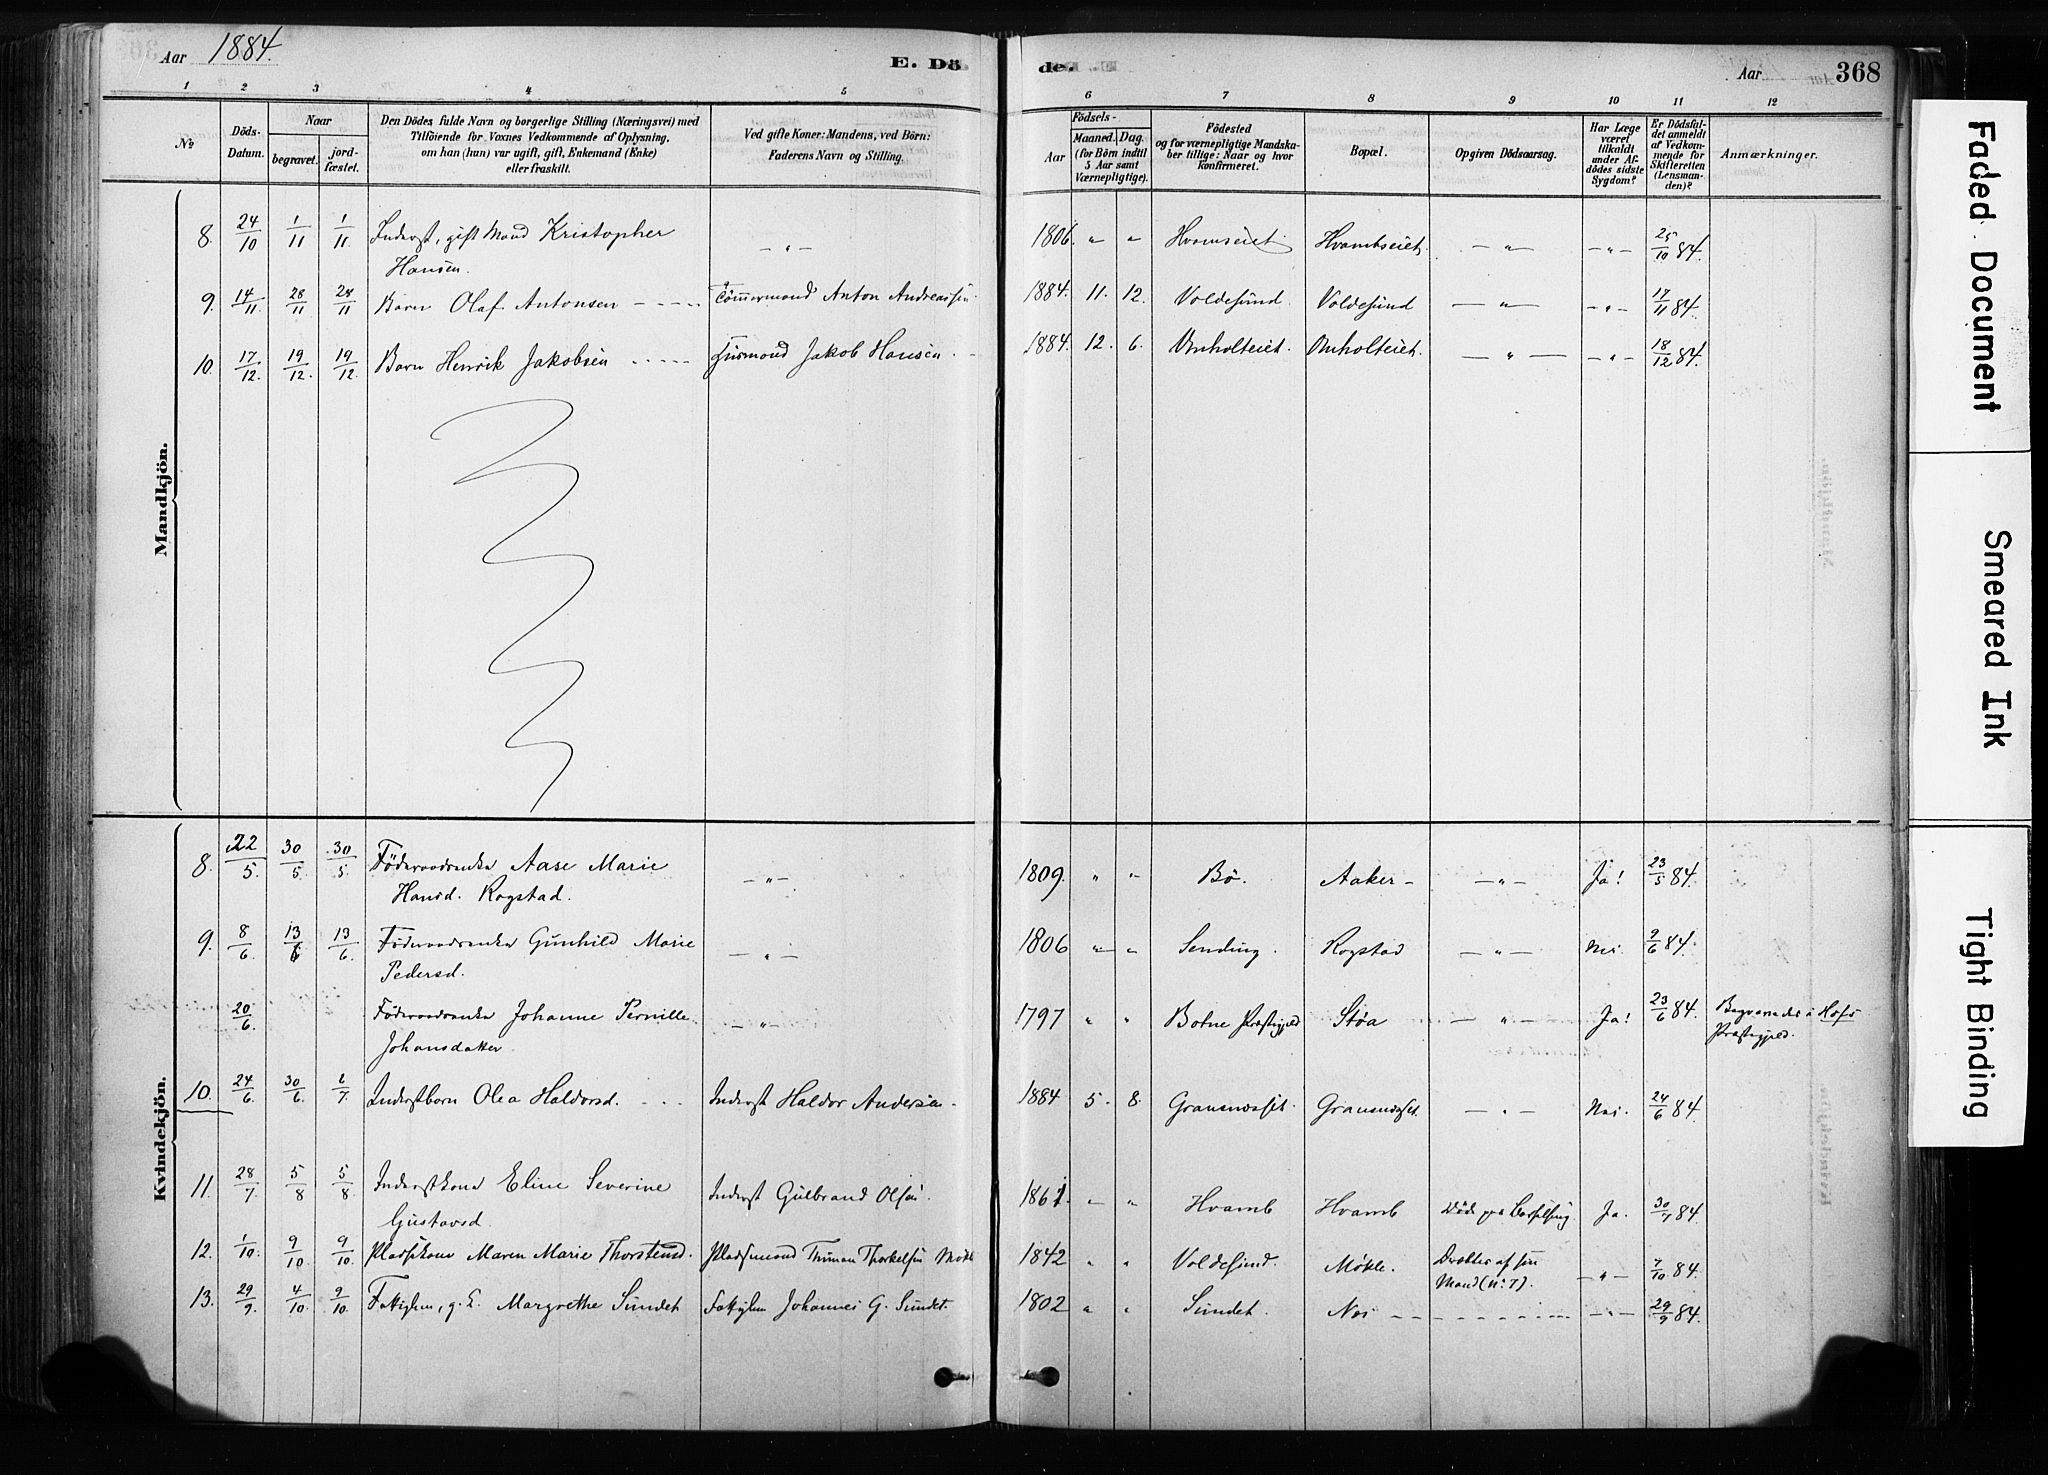 Aar 1884.
E. Döde.
Aar 368
1 2 3 4 5 6 7 8 9 10 11 12
No
Döds-Datum.
Naar
begravet.
jord-fæstet.
Den Dödes fulde Navn og borgerlige Stilling (Næringsvei) med
Tilföiende for Voxnes Vedkommende af Oplysning,
om han (hun) var ugift, gift, Enkemand (Enke)
eller fraskilt.
Ved gifte Koner: Mandens, ved Börn:
Faderens Navn og Stilling.
Födsels-
Aar
Maaned. Dag.
(for Börn indtil
5 Aar samt
Værnepligtige).
Födested
og for værnepligtige Mandska-
ber tillige: Naar og hvor
konfirmeret.
Bopæl.
Opgiven Dödsaarsag.
Har Læge
været
tilkaldt
under Af-
dödes sidste
Sygdom?
Er Dödsfal-
det anmeldt
af Vedkom-
mende for
Skifteretten
(Lensman-
den)?
Anmærkninger.
Mandkjön.
8. 24/10 1/11 1/11 Inderst, gift Mand Kristopher — " — 1806 " " Hvamseiet Hvambseiet. — " — — " — 25/10 84.
Hansen.
9. 14/11. 28/11 28/11 Barn Olaf Antonsen - - - - Tömmermand Anton Andreassen 1884. 11. 12. Voldesund. Voldesund — " — — " — 17/11 84.
10. 17/12. 19/12. 19/12. Barn Henrik Jakobsen - - - - Husmand Jakob Hansen. 1884. 12. 6. Omholteiet. Omholteiet. — " — — " — 18/12 84.
Kvindekjön.
8. 22/5. 30/5. 30/5. Föderaadsenke Aase Marie — " — 1809. " " Bö. Aaker — — " — Ja! 23/5 84.
Hansd. Rogstad.
9. 8/6. 13/6 13/6. Föderaadsenke Gunhild Marie — " — 1806 " " Sending. Rogstad — " — Nei. 9/6 84.
Pedersd.
20/6. Föderaadsenke Johanne Pernille — " — 1797 " " Botne Præstegjeld Støa — " — Ja! 23/6 84. Begravedes i Hofs
Johansdatter. Præstegjeld.
10. 24/6. 30/6. 2/7. Inderstbarn Olea Haldorsd. - - - Inderst Haldor Andersen. 1884 5. 8. Gransnæsset. Gransnæsset. — " — Nei. 24/6 84
11. 28/7. 5/8 5/8. Inderstkone Eline Severine Inderst Gulbrand Olsen. 1861. " " Hvamb Hvamb Döde paa Barselseng. Ja. 30/7 84.
Gustavsd.
12. 1/10. 9/10 9/10. Pladskone Maren Marie Thorstensd. Pladsmand Thurman Thorkelsen Møkle 1842 " " Voldesund. Møkle. Dræbtes af sin — " — 7/10 84.
Mand (N: 7).
13. 29/9. 4/10. 9/10. Fattiglem, g. K. Margrethe Sundet Fattiglem Johannes G. Sundet. 1802 " " Sundet. Nei - - - - - - — " — 29/9 84.
Faded Document
Smeared Ink
Tight Binding